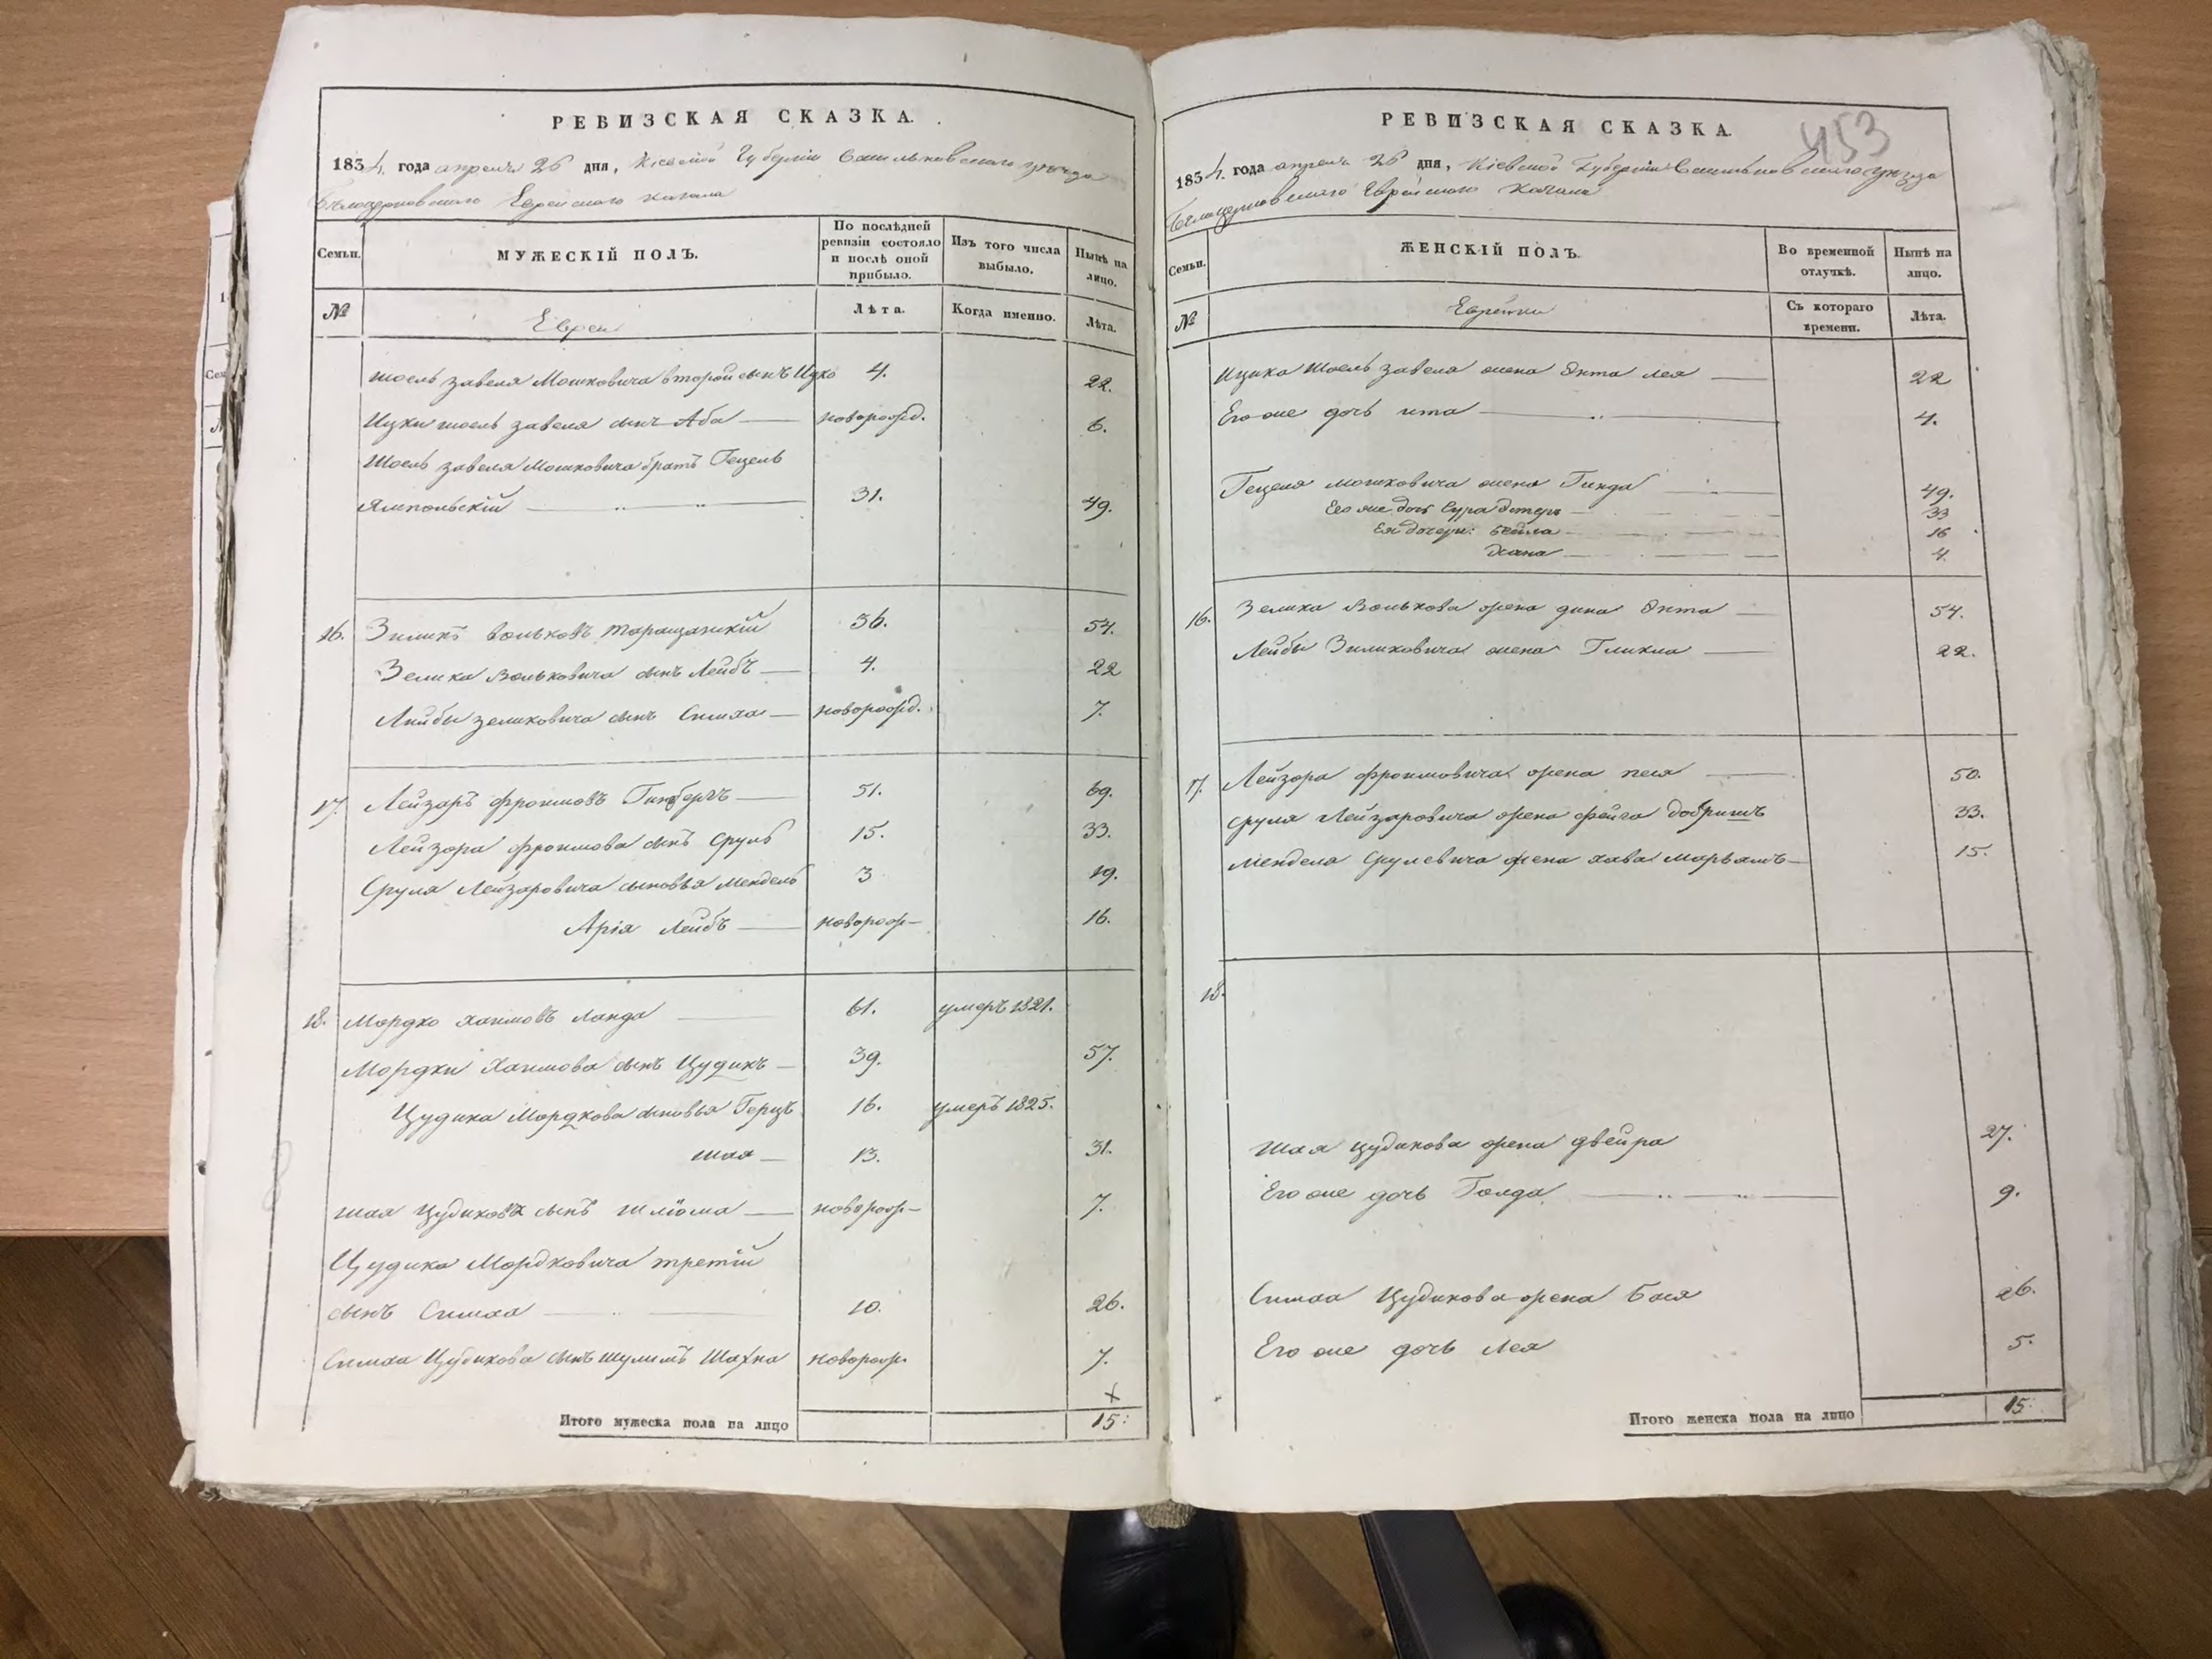 РЕВИЗСКАЯ СКАЗКА.
1834. года апреля 25 дня, Кіевской Губерніи Васильковского уезда
Бѣлоцерковского Еврейского Кагала
Семьи.
МУЖЕСКІЙ ПОЛЪ.
По послѣдней ревизіи состояло и послѣ оной прибыло.
Изъ того числа выбыло.
Нынѣ на лицо.
№
Евреи
Лѣта.
Когда именно.
Лѣта.
Шоель завеля Мошковича второй сынъ Ицко 4. 22.
Ицки шоель завеля сынъ Аба новорожд. 6.
Шоель завеля Мошковича братъ Гецель
Ямпольскій 31. 49.
16. Зиликъ Вольковъ Таращанскій 36. 54.
Зелика Вольковича сынъ Лейбъ 4. 22
Лейбы зеликовича сынъ Симха новорожд. 7.
17. Лейзоръ фроимовъ 51. 69.
Лейзора фроимова сынъ Сруль 15. 33.
Сруля Лейзаровича сыновья Мендель 3 19.
Арія Лейбъ новорож 16.
18. Мордко Хаимовъ Ланда 61. умеръ 1821.
Мордки Хаимова сынъ Цудикъ 39. 57.
Цудика Мордкова сыновья Герцъ 16. умеръ 1825.
шая 13. 31.
шая Цудикова сынъ шлиома новорож 7.
Цудика Мордковича третій
сынъ Симха 10. 26.
Симха Цудикова сынъ шулимъ Шахна новорож. 7.
Итого мужеска пола на лицо 15.
РЕВИЗСКАЯ СКАЗКА.
453
1834. года апреля 25 дня, Кіевской Губерніи Васильковского уезда
Белоцерковского Еврейского Кагала
Семьи.
ЖЕНСКІЙ ПОЛЪ.
Во временной отлучкѣ.
Нынѣ на лицо.
№
Еврейки
Съ котораго времени.
Лѣта.
Ицика Шоель завеля жена Энта лея 22
Его же дочь ита 4.
Гецеля Мошковича жена Гинда 49.
Его же дочь Сура Эстеръ 33
Ея дочери: Бейла 16
Хана 4.
16. Зелика Волькова жена дина Энта 54.
Лейбы Зиликовича жена Гликла 22.
17. Лейзора фроимовича жена песя 50.
Сруля Лейзаровича жена фейга добришъ 33.
Менделя Срулевича жена хава Марьямъ 15.
18.
Шая цудикова жена двейра 27.
Его же дочь Голда 9.
Симха Цудикова жена Бася 26.
Его же дочь Лея 5.
Итого женска пола на лицо 15.